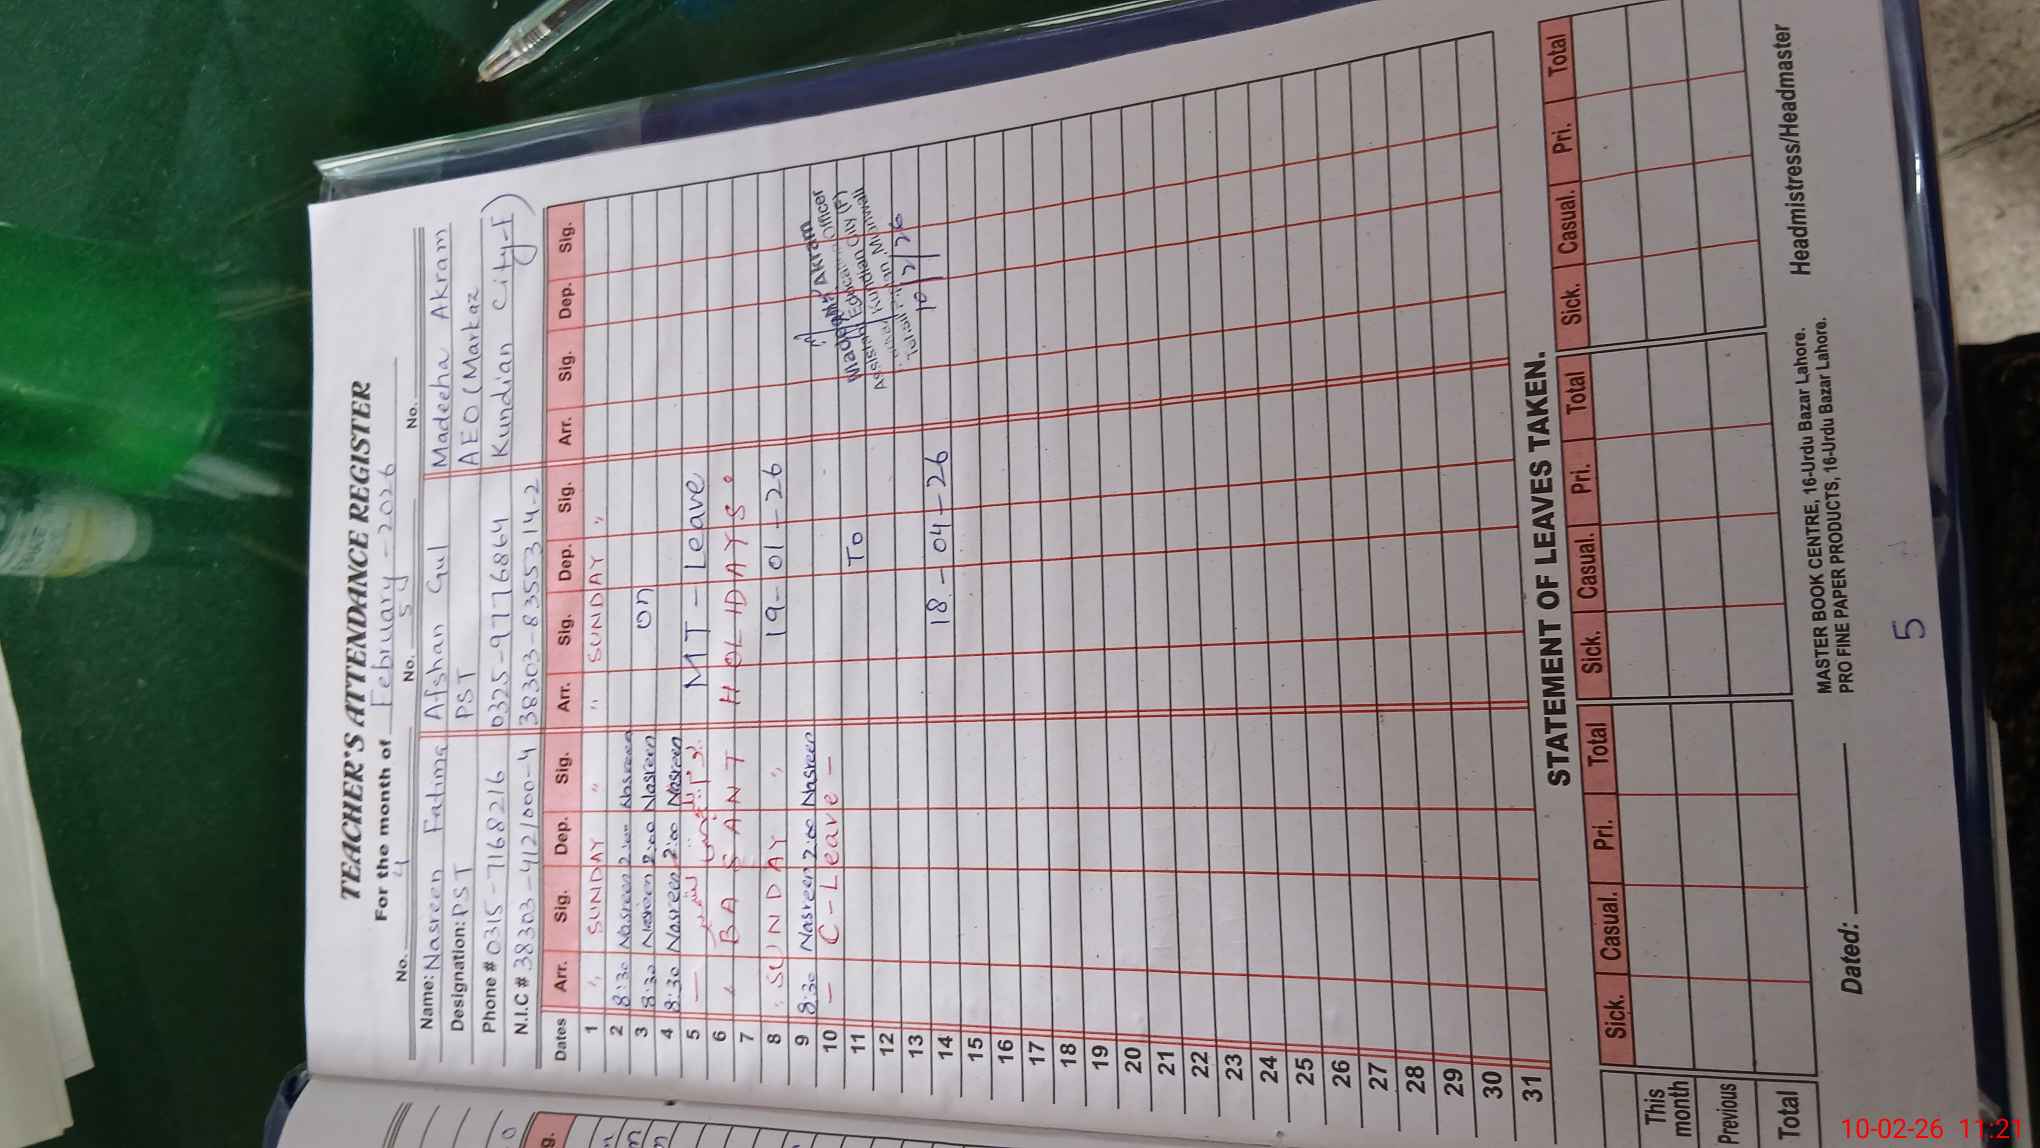 TEACHER'S ATTENDANCE REGISTER
For the month of February - 2026
No. 4 No. 54 No.
Name: Nasreen Fatima Afshan Gul Madeeha Akram
Designation: PST PST AEO (Markaz
Phone # 0315-7168216 0325-9776864 Kundian City-F)
N.I.C # 38303-4121000-4 38303-8355314-2
Dates Arr. Sig. Dep. Sig. Arr. Sig. Dep. Sig. Arr. Sig. Dep. Sig.
1 " SUNDAY " " SUNDAY "
2 8:30 Nasreen 2:00 Nasreen
3 8:30 Nasreen 2:00 Nasreen on
4 8:30 Nasreen 2:00 Nasreen
5 MT - Leave
6 BASANT HOLIDAYS
7
8 " SUNDAY " 19-01-26
9 8:30 Nasreen 2:00 Nasreen
10 - C-Leave - Madeeha Akram
11 To Assistant Education Officer
12 Markaz Kundian City (F)
13 Tehsil Piplan, Mianwali
14 18-04-26 10/2/26
15
16
17
18
19
20
21
22
23
24
25
26
27
28
29
30
31
STATEMENT OF LEAVES TAKEN.
Sick. Casual. Pri. Total Sick. Casual. Pri. Total Sick. Casual. Pri. Total
This month
Previous
Total
MASTER BOOK CENTRE, 16-Urdu Bazar Lahore.
PRO FINE PAPER PRODUCTS, 16-Urdu Bazar Lahore.
Dated: Headmistress/Headmaster
5
10-02-26 11:21